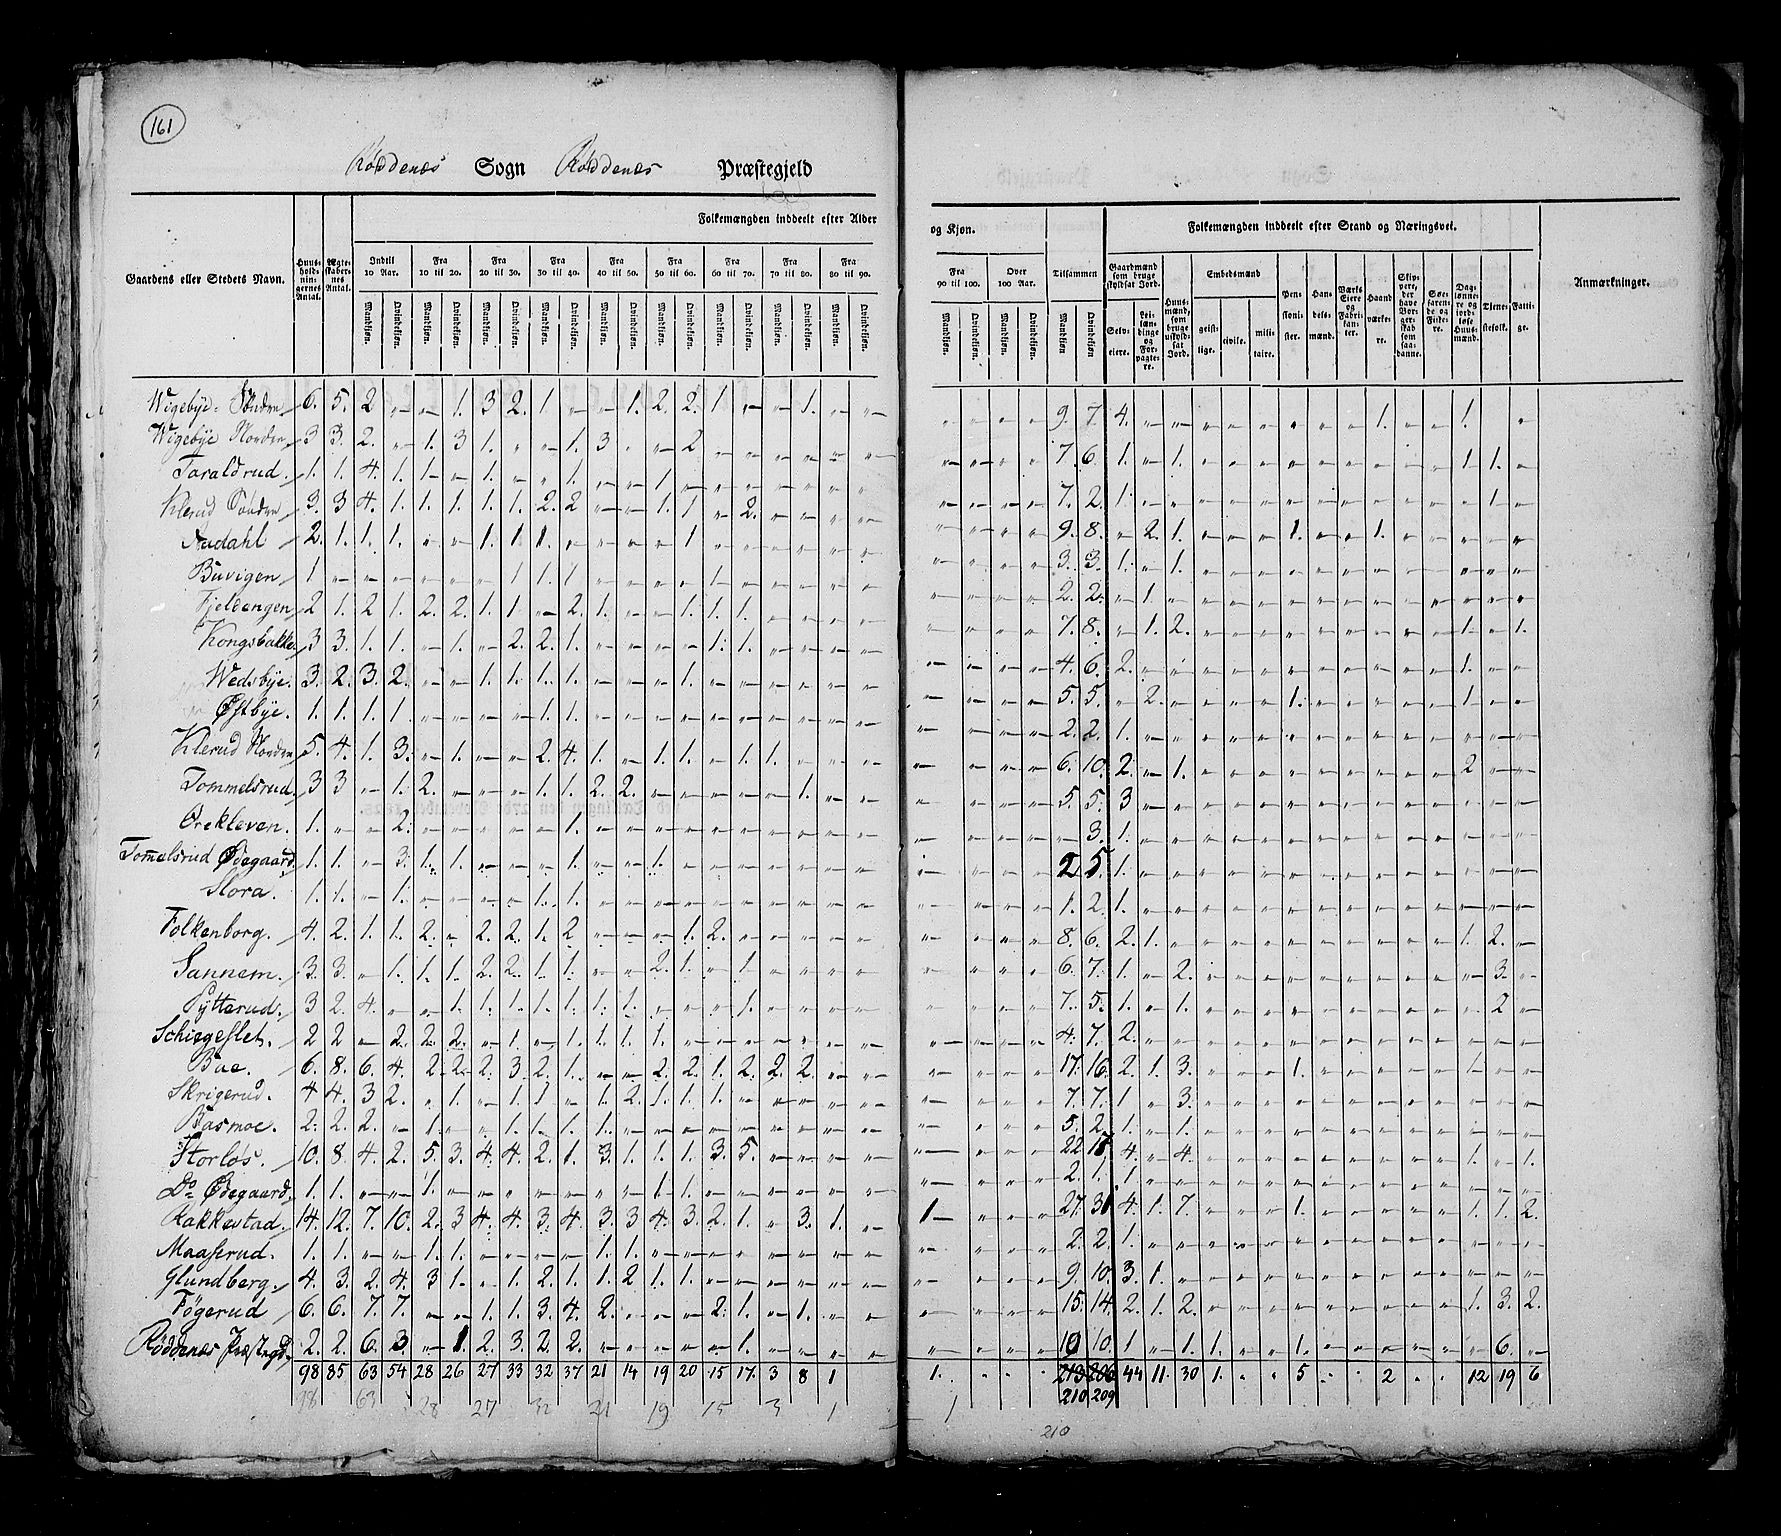 161
Røddenæs Sogn Røddenæs Præstegjeld
Folkemængden inddeelt efter Alder
og Kjøn.
Folkemængden inddeelt efter Stand og Næringsvei.
Gaardens eller Stedets Navn.
Huusholdningernes Antal.
Ægteskabernes Antal.
Indtil 10 Aar. Fra 10 til 20. Fra 20 til 30. Fra 30 til 40. Fra 40 til 50. Fra 50 til 60. Fra 60 til 70. Fra 70 til 80. Fra 80 til 90.
Fra 90 til 100. Over 100 Aar. Tilsammen
Mandkiøn. Qvindekiøn. Mandkiøn. Qvindekiøn. Mandkiøn. Qvindekiøn. Mandkiøn. Qvindekiøn. Mandkiøn. Qvindekiøn. Mandkiøn. Qvindekiøn. Mandkiøn. Qvindekiøn. Mandkiøn. Qvindekiøn. Mandkiøn. Qvindekiøn.
Mandkiøn. Qvindekiøn. Mandkiøn. Qvindekiøn. Mandkiøn. Qvindekiøn
Gaardmænd som bruge skyldsat Jord.
Selveiere. Leilændinge og Forpagtere.
Huusmænd, som bruge uskyldsat Jord.
Embedsmænd
geistlige. civile. militaire.
Pensionister.
Handelsmænd.
Værks Eiere og Fabrikanter.
Haandværkere.
Skippere, der have Borgerskab som saadanne.
Søefarende og Fiskere.
Daglønnere og jordløse Huusmænd.
Tienestefolk.
Fattige.
Anmærkninger.
Wigebye Søndre 6. 5. 2 1. 3 2. 1 1. 2. 2. 1 1. 9. 7. 4. 1. 1.
Wigebye Nordre 3 3. 2. 1. 3 1. 1. 3 2 7. 6. 1. 1. 1 1.
Taraldrud. 1. 1. 4. 1. 1 1. 1. 1 7. 2. 1. 1
Klerud Søndre 3. 3 4. 1. 1. 1. 1. 1. 2. 2 1. 1. 2. 9. 8. 2. 1. 1. 1.
Audahl 2. 1. 1. 1. 1. 1. 1. 1 3. 3. 1. 1.
Buvigen 1 1 1. 1 1 2. 2. 1.
Fjeldengen 2 1. 2 1. 2. 2. 1. 1 2. 1. 1. 1. 1. 7. 8. 1. 2. 1. 1.
Kongsbakke. 3 3. 1. 1. 1. 2. 2. 1. 1. 1. 4. 6. 2. 1.
Wedsbye. 3. 2. 3. 2. 1. 1. 1. 1. 1. 1. 5. 5. 2. 1. 1
Østbye. 1. 1. 1. 1. 1. 1. 2. 2. 1.
Klerud Nordre 5. 4. 1. 3. 1. 2. 4. 1. 1. 1. 1. 1. 6. 10. 2. 1. 2
Tommelsrud. 3 3 1. 2. 1. 1. 2. 2. 1. 5. 5. 3
Orekleven. 1. 2. 1. 3. 1.
Tommelsrud Ødegaard. 1. 1. 3. 1. 1. 1. 1. 2 5. 1.
Slora. 1. 1. 1. 1. 1 1. 2. 1.
Folkenborg. 4. 2. 1. 1. 2. 2. 2. 1. 2 1. 2. 8. 6. 2. 1. 1. 2.
Sannem. 3. 3. 1. 1. 1. 2. 2. 1. 1. 2. 1. 1. 6. 7. 1. 2. 3.
Pytterud. 3 2. 4. 1. 1. 1. 1. 1. 1. 1. 1. 7. 5. 1. 1. 2
Schiegeslet. 2 2 2. 2. 2. 1. 1. 1. 1. 1. 4. 7. 2.
Bue. 6. 8. 6. 4. 2. 2. 2. 3. 2. 1. 2. 2. 1. 2. 2. 2. 17. 16. 2. 1. 3. 1. 1
Skrigerud. 4 4. 3 2. 1. 1. 1 1. 2. 1. 1. 1. 7. 7. 1 3.
Basmoe. 2. 2. 2. 1. 1. 1. 1. 1. 5. 2. 1. 1.
Storløs. 10. 8. 4. 2. 5. 3. 4. 4. 2. 1. 3. 1. 1. 1. 3. 5. 22 4. 4. 1. 1.
Do Ødegaard. 1. 1. 1. 1 1. 2. 1. 1.
Kakkestad. 14. 12. 7. 10. 2. 3 4. 4. 3. 4. 3. 3 4. 3. 2. 1. 3. 1. 1 27. 31 4. 1. 7. 1. 1. 1. 2.
Maaserud. 1. 1. 1. 1. 1. 1. 2. 2. 1.
Glundberg. 4. 3. 2. 4. 3 1. 1. 2. 1. 1. 2 1. 1. 9. 10. 3. 1.
Fögerud 6. 6. 7. 7. 1. 1. 3. 4. 2. 2. 1. 1. 15. 14. 2. 1. 2. 1. 3. 2.
Røddenæs Præstegd. 2. 2. 6. 3 1. 2. 3. 2. 2. 1. 10 10. 1 1. 1. 1. 6.
98 85 63 54 28 26 27 33 32 37 21 14 19 20 15 17. 3 8 1 1. 213 206 44 11. 30 1. 5 2 12 19 6
210 209
98 63 28 27 32 21 19 15 3 1 1
210